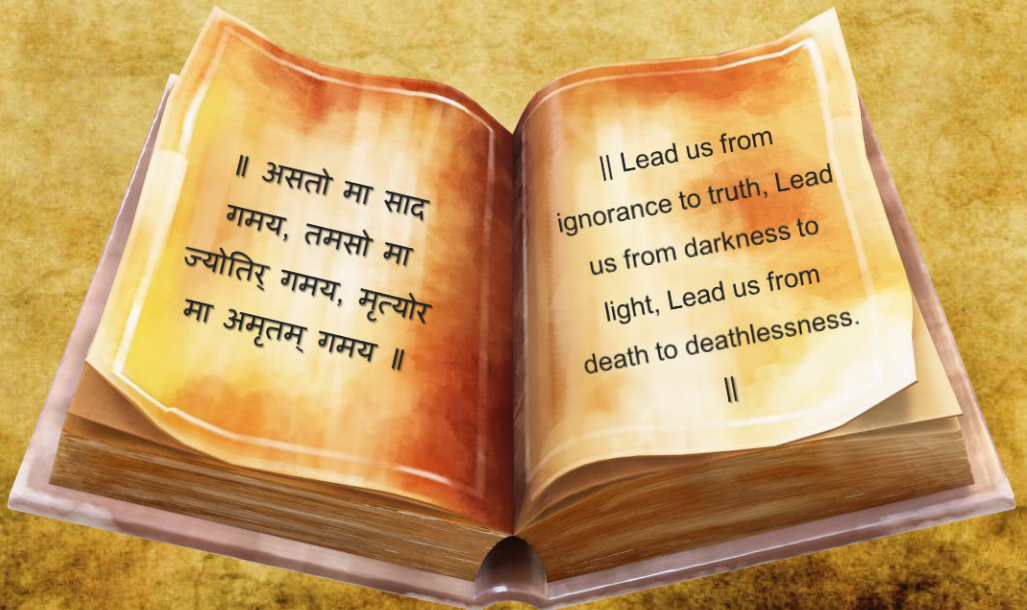 ॥ असतो मा साद
गमय, तमसो मा
ज्योतिर् गमय, मृत्योर
मा अमृतम् गमय ॥
|| Lead us from
ignorance to truth, Lead
us from darkness to
light, Lead us from
death to deathlessness.
||